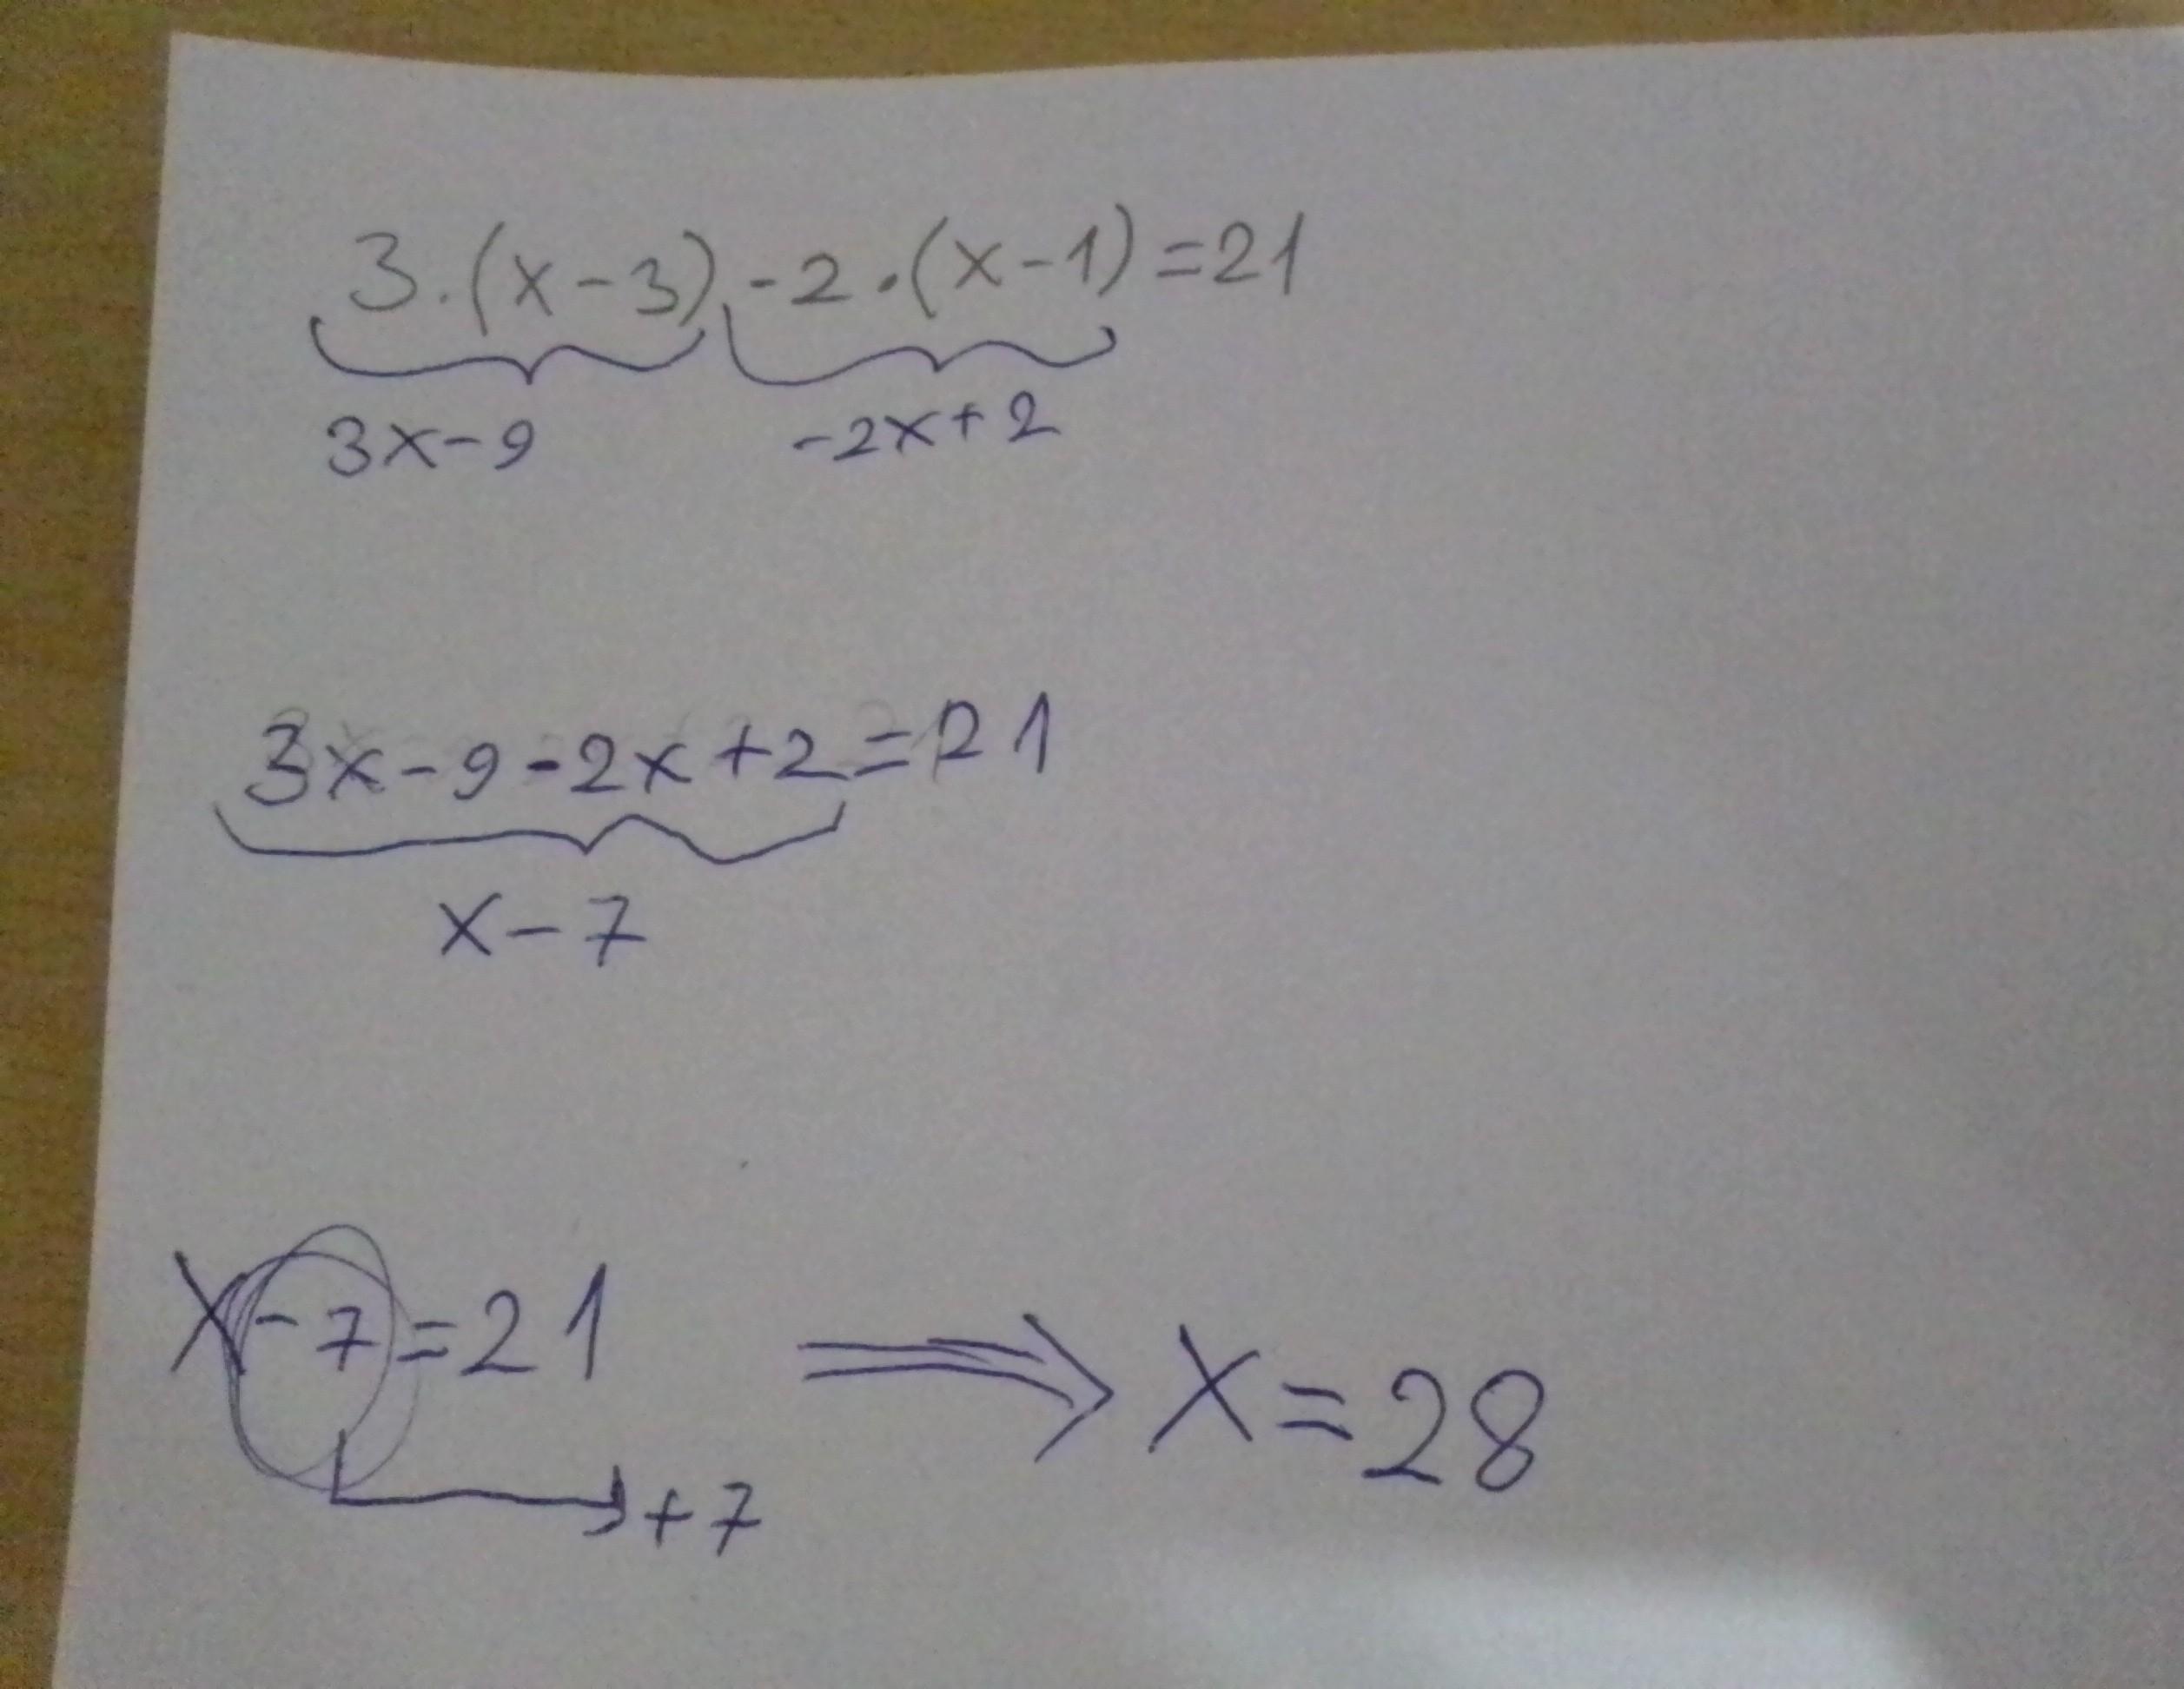 3.(x-3)-2.(x-1)=21
3x-9 -2x+2
3x-9-2x+2=21
x-7
x-7=21 ⟹ x=28
+7